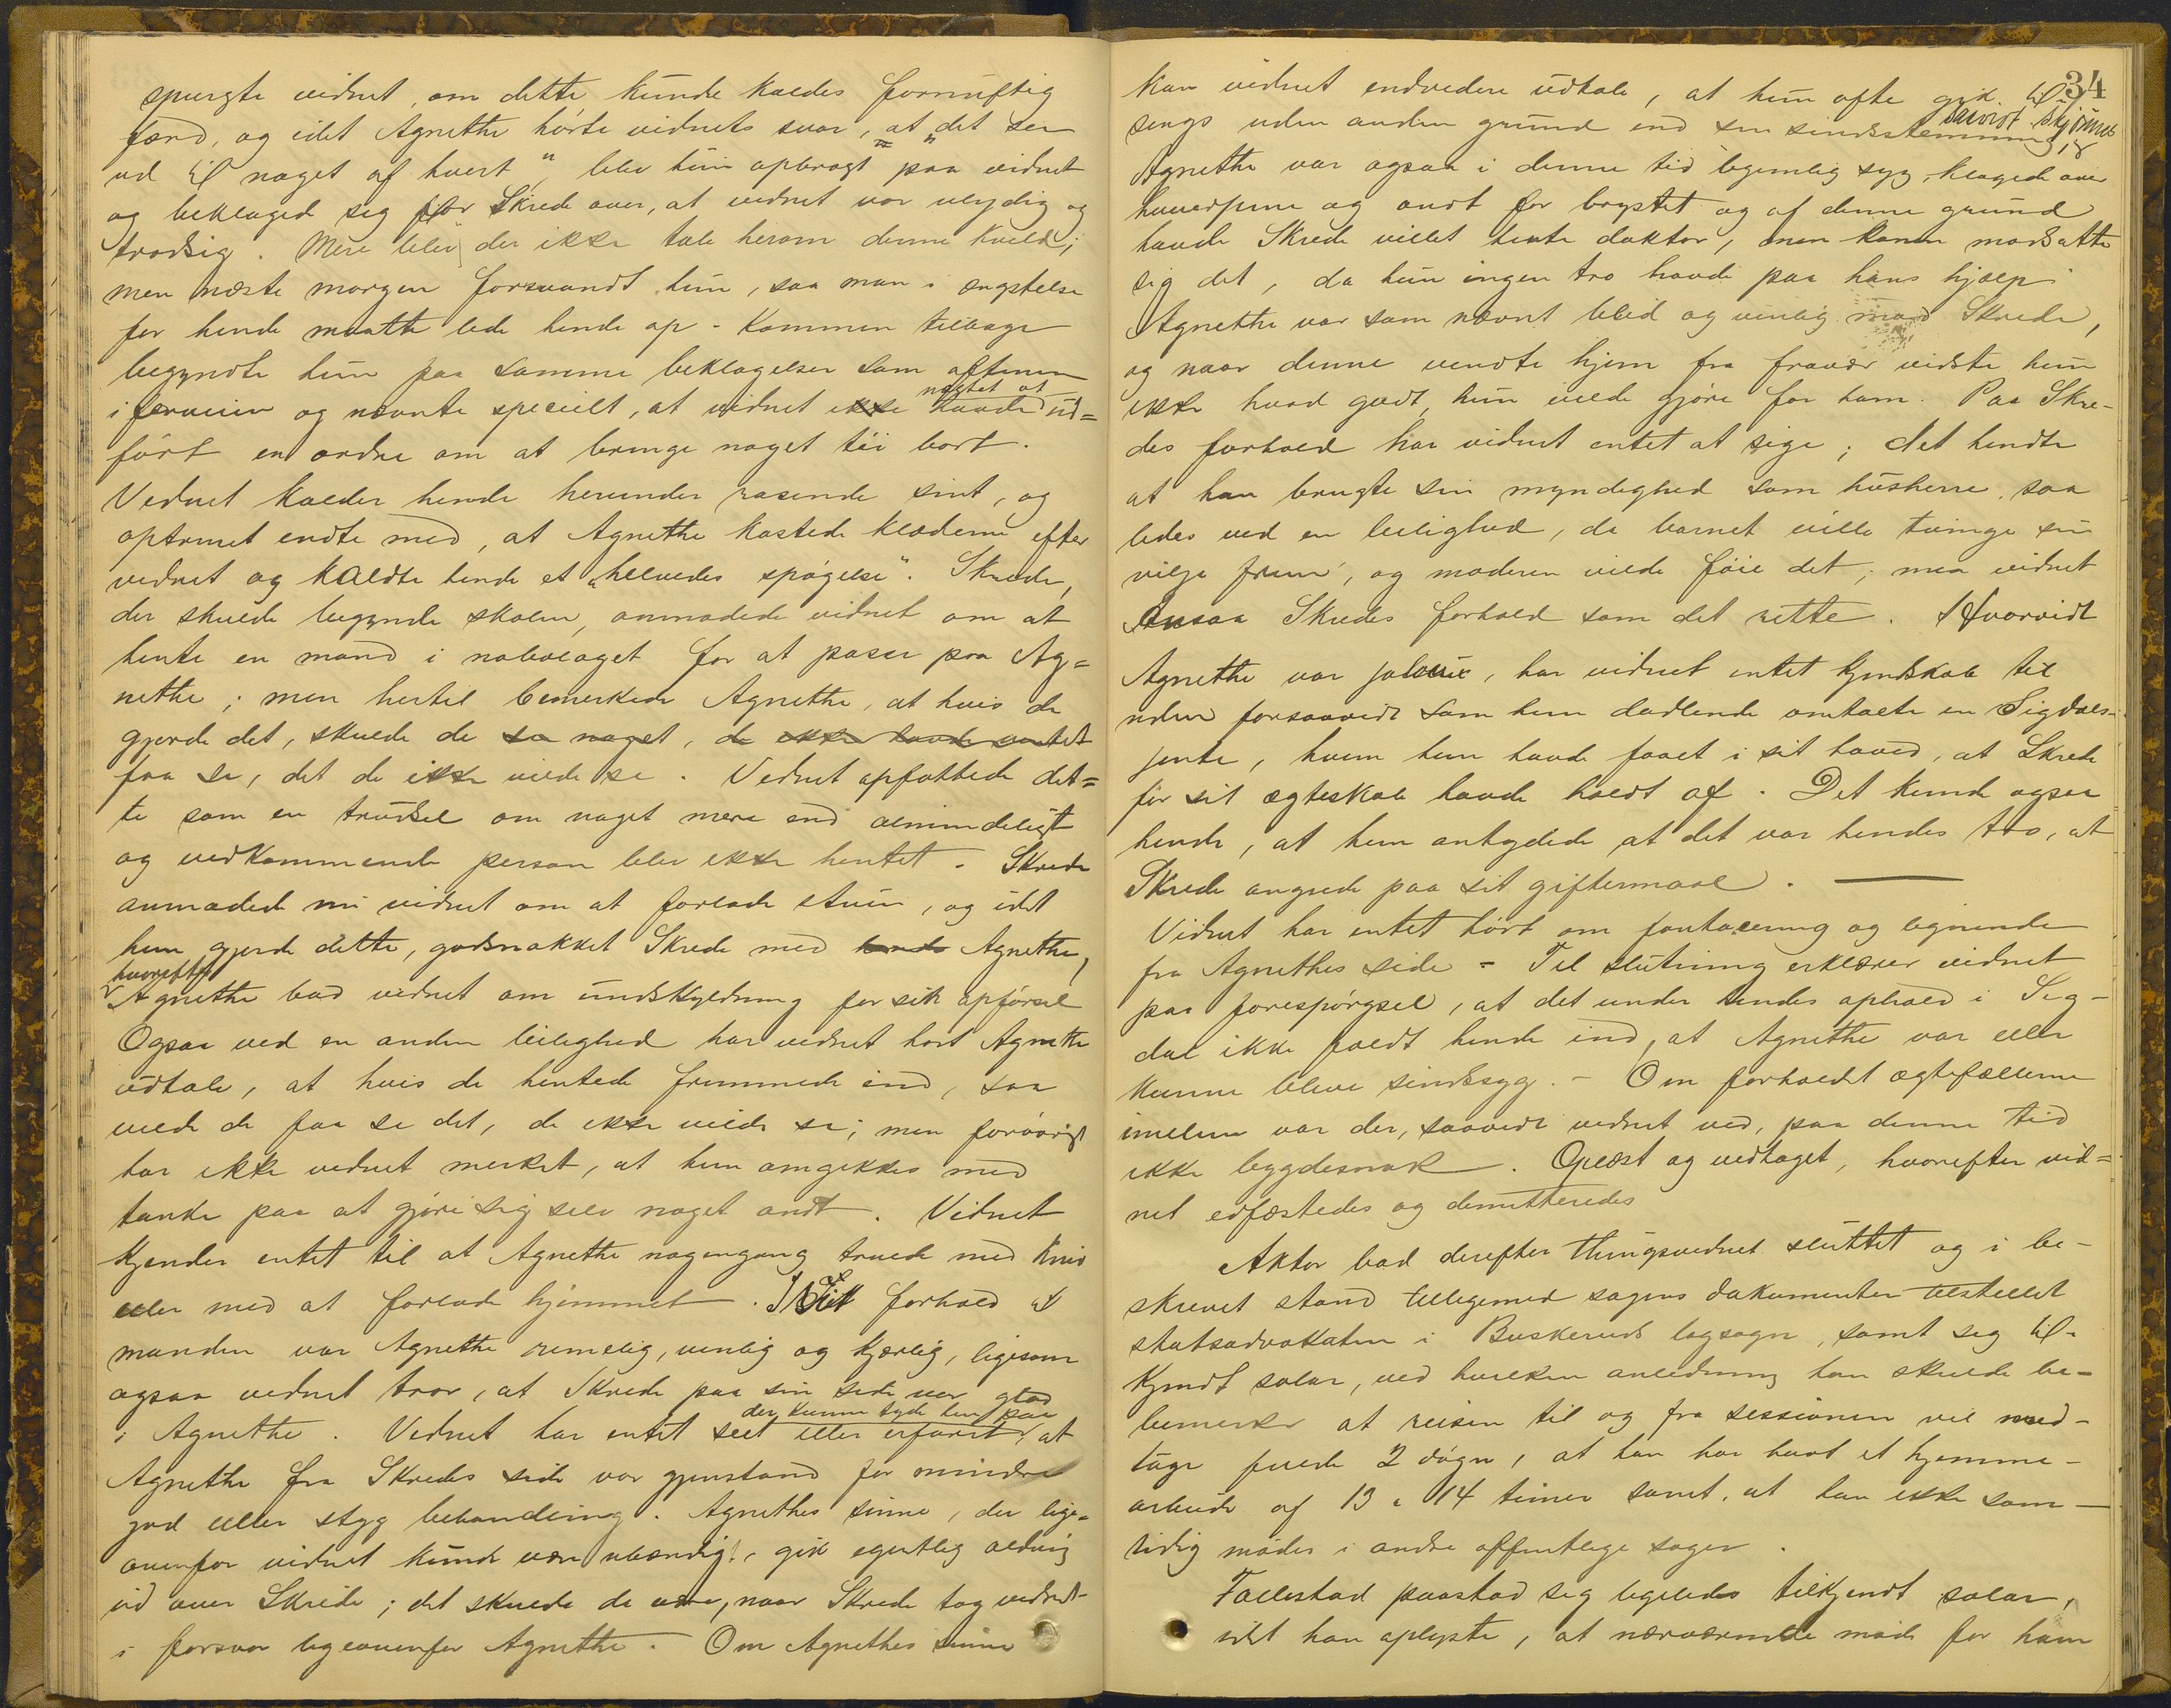 spurgte vidnet, om dette kunde kaldes fornuftig
færd, og idet Agnethe hørte vidnets svar, at "det ser
ud til noget af hvert", blev hun opbragt paa vidnet
og beklaged sig for Skrede over, at vidnet var ulydig og
trodsig. Mere blev der ikke tale herom denne kveld;
men næste morgen forsvandt hun, saa man i ængstelse
for hende maatte lede hende op. Kommen tilbage
begyndte hun paa samme beklagelser som aftenen
nægtet at
iforveien og nævnte specielt, at vidnet ikke havde ud=
ført en ordre om at bringe noget tøi bort.
Vidnet kalder hende herunder rasende sint, og
optrinet endte med, at Agnethe kastede klæderne efter
vidnet og kaldte hende et "helvedes spøgelse". Skrede,
der skulde begynde skolen, anmodede vidnet om at
hente en mand i nabolaget for at passe paa Ag=
nethe; men hertil bemerkede Agnethe, at hvis de
gjorde det, skulde de se noget, de ikke havde ventet
faa se, det de ikke vilde se. Vidnet opfattede det=
te som en trudsel om noget mere end almindeligt
og vedkommende person blev ikke hentet. Skrede
anmodede nu vidnet om at forlade stuen, og idet
hun gjorde dette, godsnakket Skrede med hende Agnethe,
hvorefter
Agnethe bad vidnet om undskyldning for sin opførsel
Ogsaa ved en anden leilighed har vidnet hørt Agnethe
udtale, at hvis de hentede fremmede ind, saa
vilde de faa se det, de ikke vilde se; men forøvrigt
har ikke vidnet merket, at hun omgikkes med
tanke paa at gjøre sig selv noget ondt. Vidnet
kjender intet til at Agnethe nogengang truede med kniv
eller med at forlade hjemmet. I sit forhold til
manden var Agnethe rimelig, venlig og kjærlig, ligesom
ogsaa vidnet tror, at Skrede paa sin side var glad
der kunne tyde hen paa
i Agnethe. Vidnet har intet seet eller erfaret, at
Agnethe fra Skredes side var gjenstand for mindre
god eller styg behandling. Agnethes sinne, der lige=
ovenfor vidnet kunde være ubændigt, gik egentlig aldrig
ud over Skrede; det skulde da være, naar Skrede tog vidnet
i forsvar ligeovenfor Agnethe. Om Agnethes sinne
34
kan vidnet endvidere udtale, at hun ofte gik til
saavidt skjønnes
sengs uden anden grund end sin sindsstemning,
Agnethe var ogsaa i denne tid legemlig syg, klagede over
hovedpine og ondt for brystet og af denne grund
havde Skrede villet hente doktor, men konen modsatte
sig det, da hun ingen tro havde paa hans hjælp
Agnethe var som nævnt blid og venlig mod Skrede,
og naar denne vendte hjem fra fravær vidste hun
ikke hvad godt hun vilde gjøre for ham. Paa Skre-
des forhold har vidnet intet at sige; det hendte
at han brugte sin myndighed som husherre, saa
ledes ved en leilighed, da barnet ville tvinge sin
vilje frem, og moderen vilde føie det; men vidnet
ansaa Skredes forhold som det rette. Hvorvidt
Agnethe var jaloux, har vidnet intet kjendskab til
uden forsaavidt som hun dadlende omtalte en Sigdals-
jente, hvem hun havde faaet i sit hoved, at Skrede
før sit ægteskab havde holdt af. Det kunde ogsaa
hende, at hun antydede at det var hendes tro, at
Skrede angrede paa sit giftermaal.
Vidnet har intet hørt om fantasering og lignende
fra Agnethes side. Til slutning erklærer vidnet
paa forespørgsel, at det under hendes ophold i Sig-
dal ikke faldt hende ind, at Agnethe var eller
kunne blive sindssyg. – Om forholdet ægtefællerne
imellem var der, saavidt vidnet ved, paa denne tid
ikke bygdesnak. Oplæst og vedtaget, hvorefter vid=
net edfæstedes og demitteredes
Aktor bad derefter thingsvidnet sluttet og i be-
skrevet stand tilligemed sagens dokumenter tilstillet
statsadvokaten i Buskeruds lagsogn, samt sig til-
kjendt salær, ved hvilken anledning han skulde be-
bemerke at reisen til og fra sessionen vil med-
tage fulde 2 døgn, at han har havt et hjemme-
arbeide af 13 a 14 timer samt, at han ikke sam-
tidig møder i andre offentlige sager.
Fallestad paastod sig ligeledes tilkjendt salær,
idet han oplyste, at nærværende møde for ham